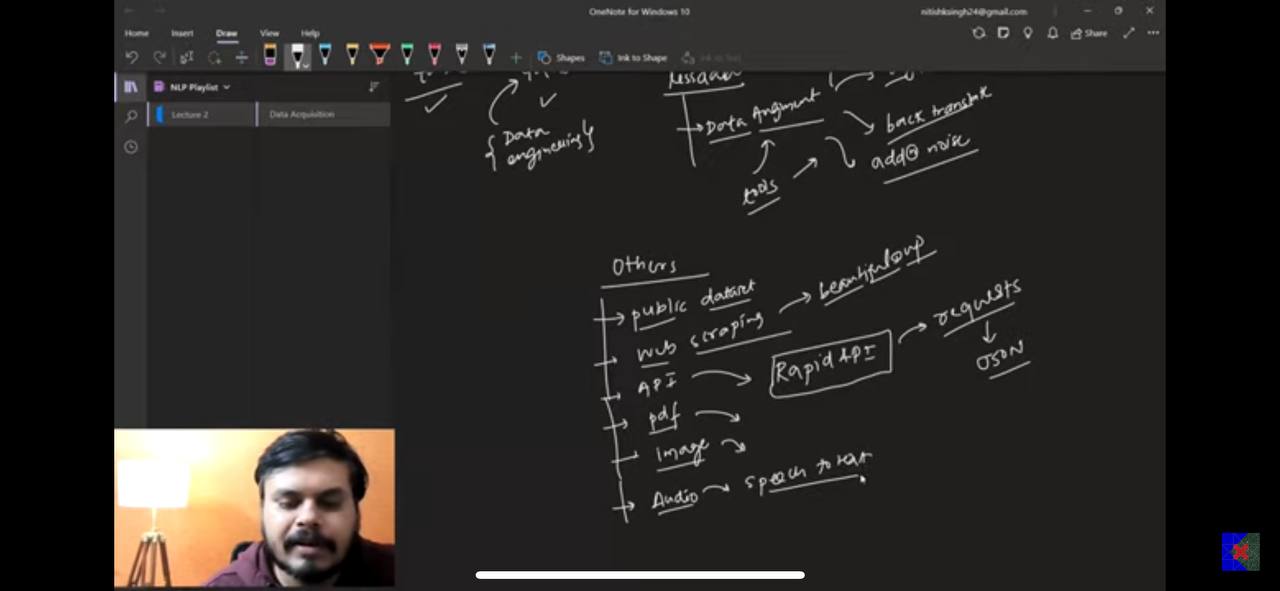 OneNote for Windows 10
nitishksingh24@gmail.com
Home Insert Draw View Help
Share
Shapes Ink to Shape Ink to Text
NLP Playlist
Lecture 2 Data Acquisition
{Data engineering}
less data
Data Augment
back translate
add noise
tools
Others
public dataset
web scraping
beautifulsoup
API
Rapid API
requests
JSON
pdf
Image
Audio
speech to text